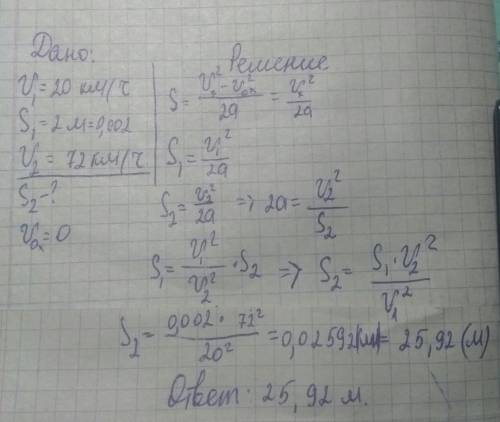 Дано:
Решение
V₁ = 20 км/ч
S₁ = 2 м = 0,002
V₂ = 72 км/ч
S₂ - ?
V₀ₓ = 0
S = (Vₓ² - V₀ₓ²)/2a = Vₓ²/2a
S₁ = V₁²/2a
S₂ = V₂²/2a => 2a = V₂²/S₂
S₁ = V₁²/V₂² · S₂ => S₂ = S₁ · V₂²/V₁²
S₂ = 0,002 · 72²/20² = 0,02592(км) = 25,92 (м)
Ответ: 25,92 м.